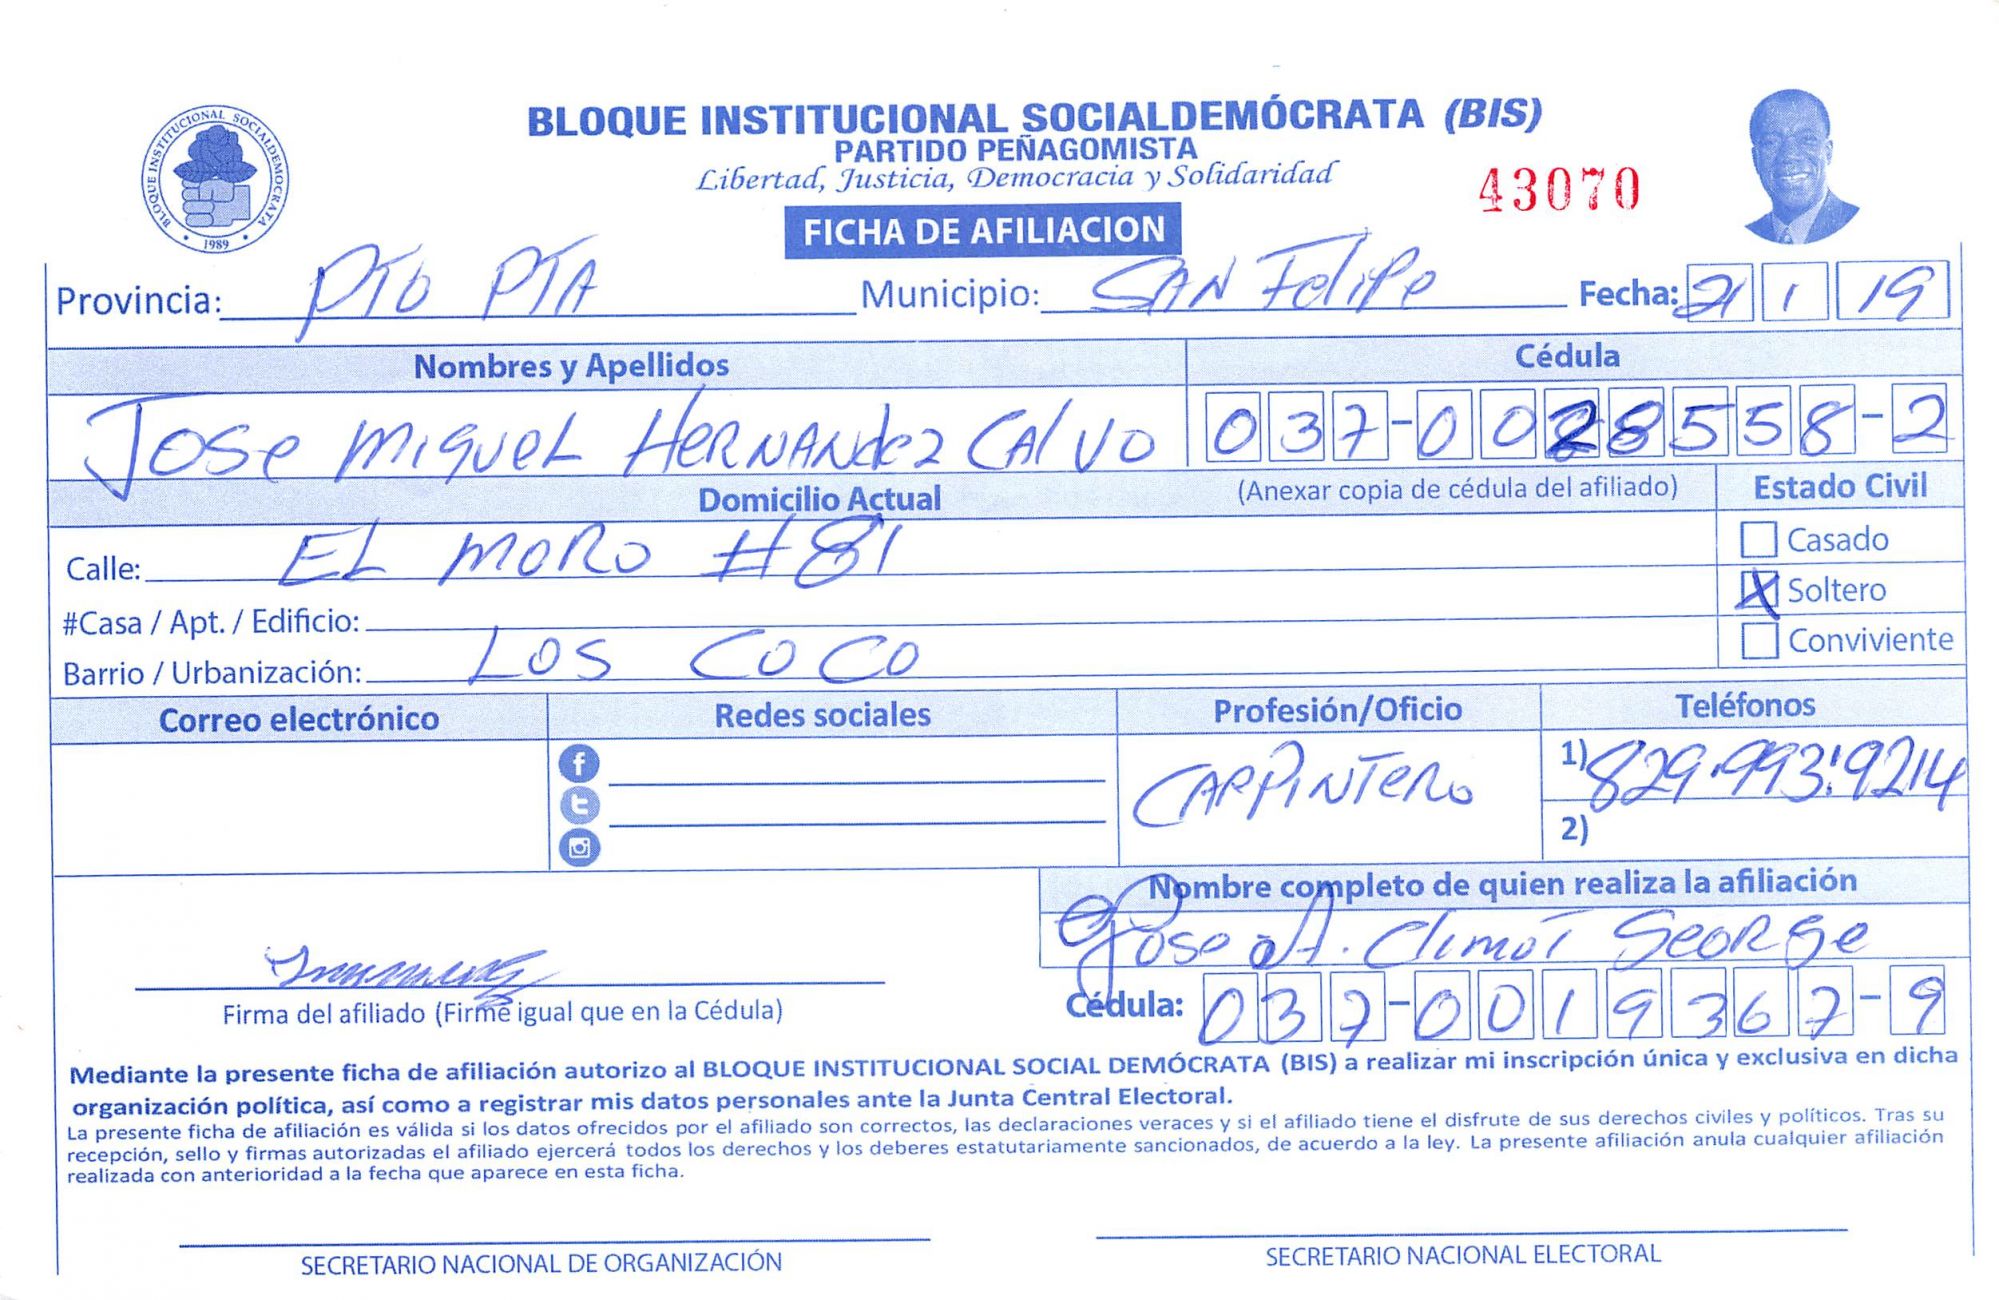 BLOQUE INSTITUCIONAL SOCIALDEMÓCRATA (BIS)
PARTIDO PEÑAGOMISTA
Libertad, Justicia, Democracia y Solidaridad
43070
BLOQUE INSTITUCIONAL SOCIALDEMOCRATA
• 1989 •
FICHA DE AFILIACION
Provincia: PTO PTA Municipio: SAN Felipe Fecha: 21 1 19
Nombres y Apellidos Cédula
JOSE MIGUEL HERNANdez CAlVO 037-0028558-2
Domicilio Actual (Anexar copia de cédula del afiliado) Estado Civil
Calle: EL MORO #81
Casado
X Soltero
#Casa / Apt. / Edificio:
Conviviente
Barrio / Urbanización: LOS COCO
Correo electrónico Redes sociales Profesión/Oficio Teléfonos
CARPINTERO 1) 829.993.9214
2)
Nombre completo de quien realiza la afiliación
Jose A. Climot George
Firma del afiliado (Firme igual que en la Cédula)
Cédula: 037-0019367-9
Mediante la presente ficha de afiliación autorizo al BLOQUE INSTITUCIONAL SOCIAL DEMÓCRATA (BIS) a realizar mi inscripción única y exclusiva en dicha
organización política, así como a registrar mis datos personales ante la Junta Central Electoral.
La presente ficha de afiliación es válida si los datos ofrecidos por el afiliado son correctos, las declaraciones veraces y si el afiliado tiene el disfrute de sus derechos civiles y políticos. Tras su
recepción, sello y firmas autorizadas el afiliado ejercerá todos los derechos y los deberes estatutariamente sancionados, de acuerdo a la ley. La presente afiliación anula cualquier afiliación
realizada con anterioridad a la fecha que aparece en esta ficha.
SECRETARIO NACIONAL DE ORGANIZACIÓN SECRETARIO NACIONAL ELECTORAL